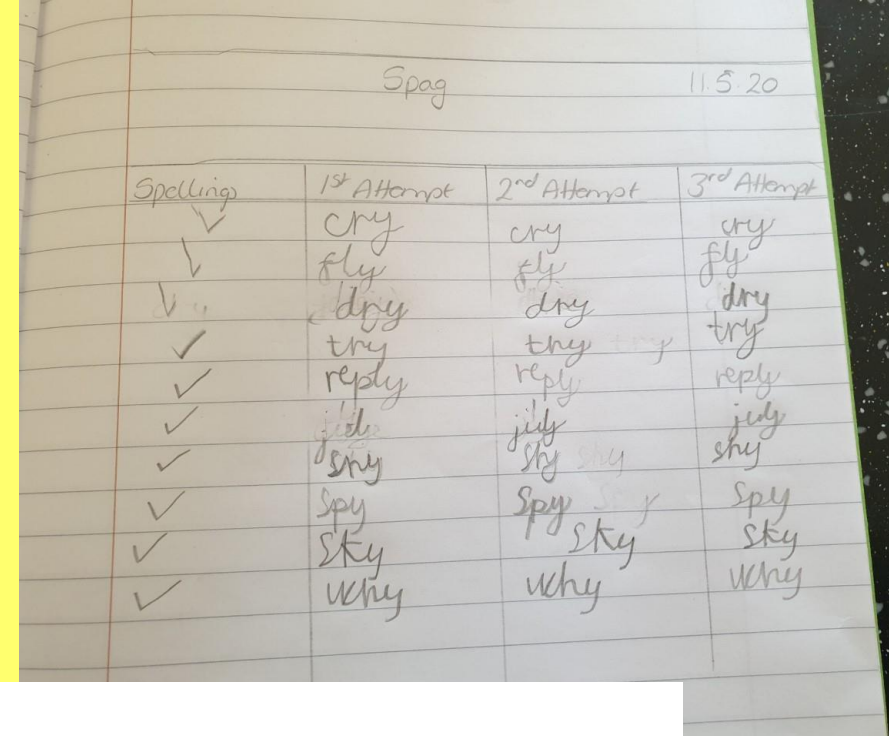 Spag 11.5.20
Spellings 1st Attempt 2nd Attempt 3rd Attempt
cry cry cry
fly fly fly
dry dry dry
try try try try
reply reply reply
july july
shy shy shy shy
spy spy spy
sky sky sky
why why why